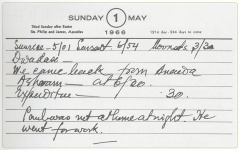 SUNDAY 1 MAY
Third Sunday after Easter
Ss. Philip and James, Apostles
1966
121st day - 244 days to come
Sunrise - 5/01 Sunset 6/54 Moonset 3/30
Dwadasi -
We came back from Aneida
Ashram - at 6/20.
Expenditure - 30.
Paul was not at home at night. He
went for work.